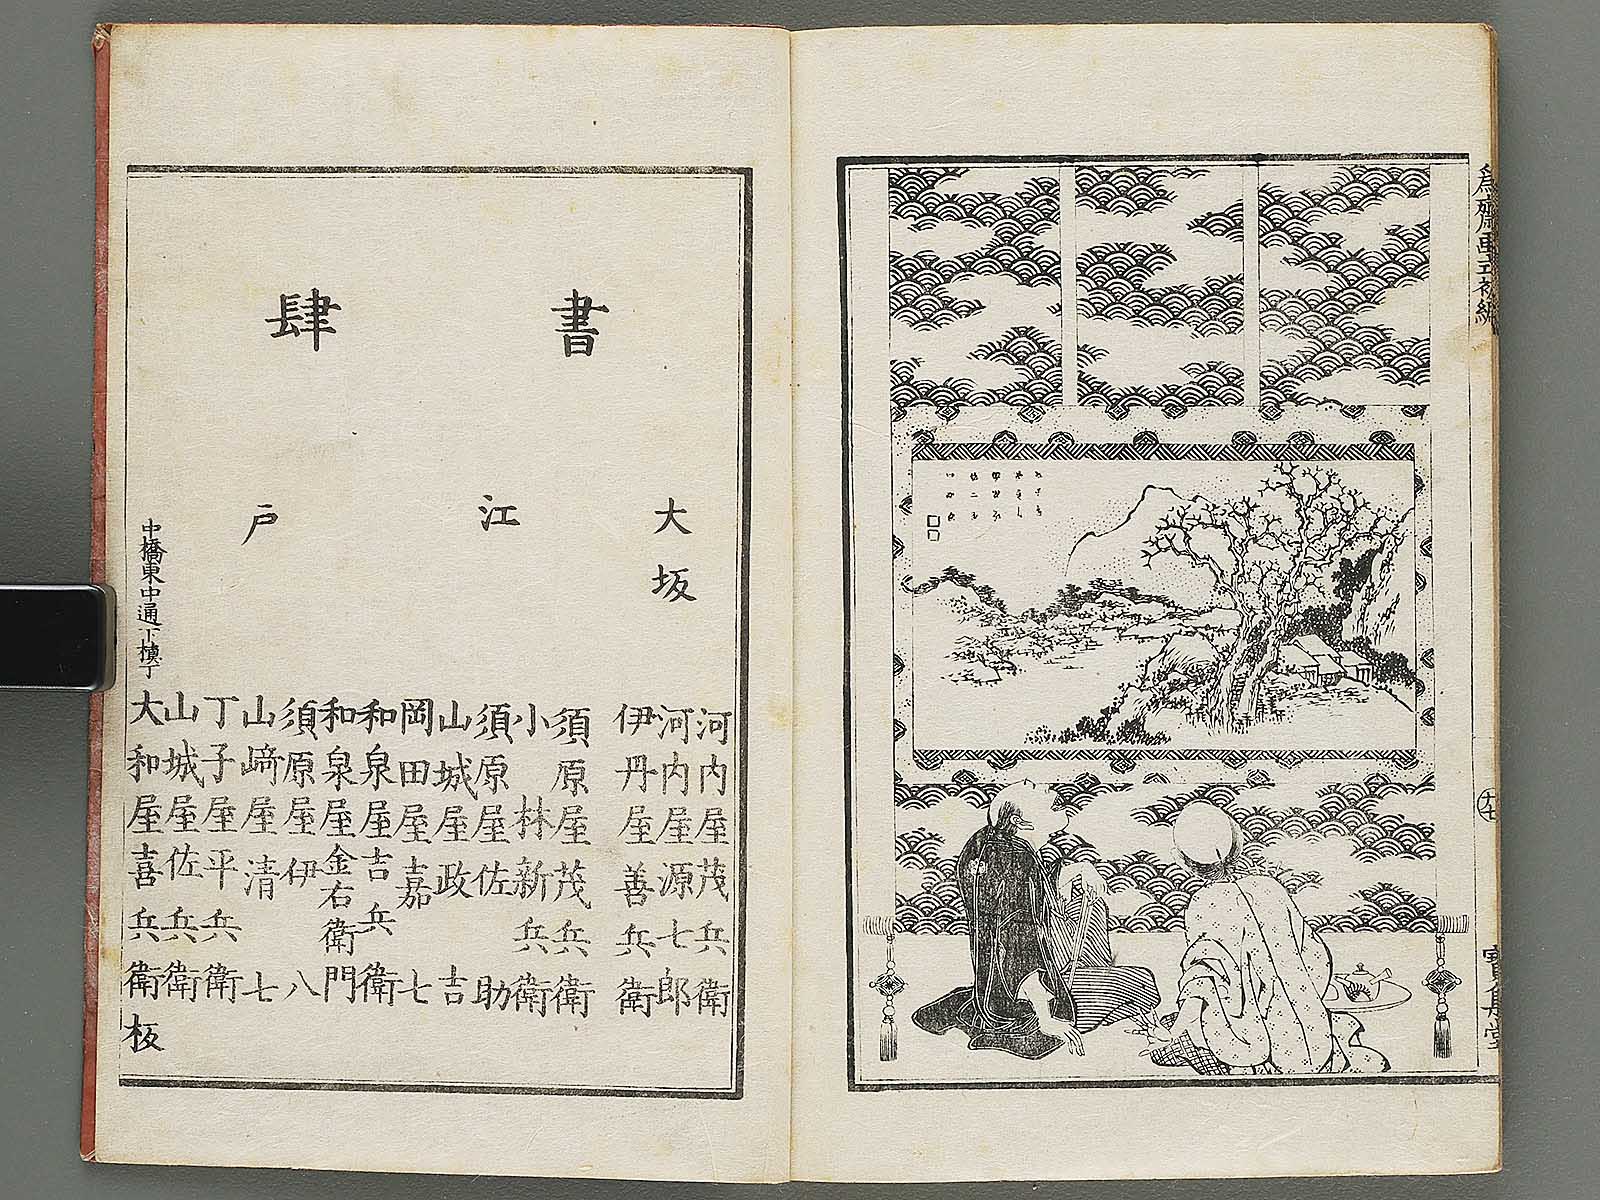 為齋画式初編
寳集堂
書肆
大坂
河内屋茂兵衛
河内屋源七郎
伊丹屋善兵衛
江戸
須原屋茂兵衛
小林新兵衛
須原屋佐助
山城屋政吉
岡田屋嘉七
和泉屋吉兵衛
和泉屋金右衛門
須原屋伊八
山﨑屋清七
丁子屋平兵衛
山城屋佐兵衛
中橋東中通下槙丁
大和屋喜兵衛板